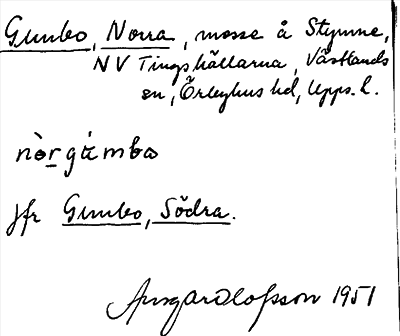 Gumbo, Norra, mosse å Stymne,
NV Tingshällarna, Västlands
sn, Örbyhus hd, Upps. l.
nòrgúmbo
jfr Gumbo, Södra.
Ansgar Olofsson 1951